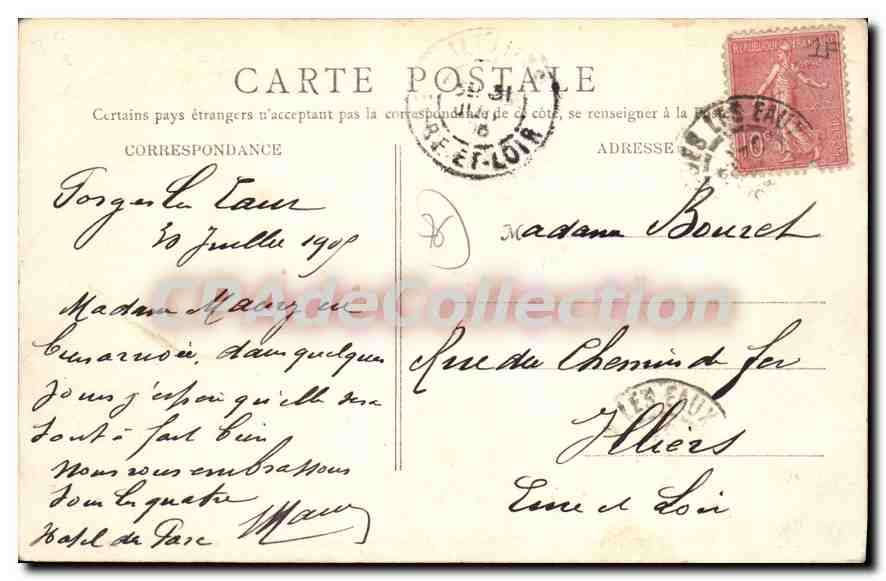 CARTE POSTALE
Certains pays étrangers n'acceptant pas la correspondance de ce côté, se renseigner à la Poste
CORRESPONDANCE
ADRESSE
RÉPUBLIQUE FRANÇAISE
10
LES EAUX
31
ET-LOIR
Forges les Eaux
30 Juillet 1905
Madame
bien arrivée, dans quelques
jours j'espère qu'elle sera
tout à fait bien
Nous vous embrassons
tous les quatre
Hotel du Parc
Madame Bouret
Rue du Chemin de fer
LES EAUX
Illiers
Eure et Loir
CPAdeCollection